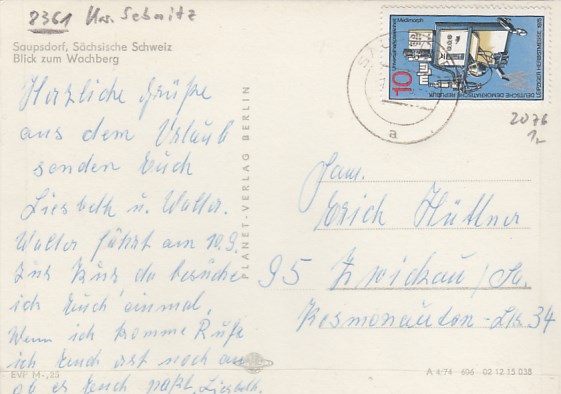 8361 Krs. Sebnitz
Saupsdorf, Sächsische Schweiz
Blick zum Wachberg
Herzliche Grüße
aus dem Urlaub
senden Euch
Liesbeth u. Walter.
Walter fährt am 10.9.
zur Kur da besuche
ich Euch einmal,
Wenn ich komme Rufe
ich Euch erst noch an
ob es Euch paßt, Liesbeth.
EVP M -,25
PLANET-VERLAG BERLIN
10
Universalmeßkammer
DEUTSCHE DEMOKRATISCHE REPUBLIK
LEIPZIGER HERBSTMESSE 1975
a
2076
1,-
Fam.
Erich Hüttner
95 Zwickau/Sa.
Kosmonauten-Str. 34
A 4/74 606 02 12 15 038